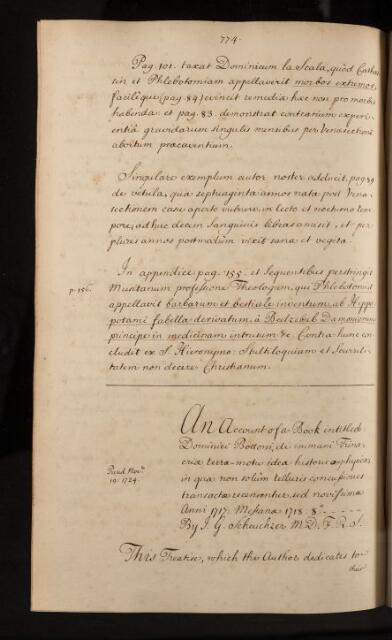 774.
Pag. 101. taxat Dominicum la Scala, quod Cathar
sin et Phlebotomiam appellaverit morbos extemos,
facilèque (pag. 84) evincit remedia hæc non pro morbis
habenda: et pag. 83. demonstrat contrarium experi-
entiâ gravidarum singulis mensibus per Venæsectionem
abortum præcaventium.
Singulare exemplum autor noster adducit, pag 89
de vetula, quæ septuaginta annos nata post Venæ-
sectionem casu aperto vulnere in lecto et nocturno tem
pore, adhuc decem Sanguinis libras amisit, et per
plures annos postmodum vixit sana et vegeta.
In appendice pag. 155. et Sequentibus perstringit
p. 156.
Muritanum professione Theologum, qui Phlebotomiam
appellavit barbarum et bestiale inventum, ab Hyppo-
potami fabella derivatum, à Beelzebub Dæmoniorum
principe in medicinam intrusum &c. Contra hunc con-
cludit ex S. Hieronymo: Stultiloquium et Scurrili-
tatem non decere Christianum.
An Account of a Book intitled
Dominici Bottoni, de immani Trina-
criæ terræ-motu idea historico-physica
Read Nov.r
19. 1724.
in qua non solum telluris concussiones
transactæ recensentur, sed novissima
Anni 1717. Messanæ 1718. 8°
By J. G. Scheuchzer M.D. F. R. S.
This Treatise, which the Author dedicates to
their